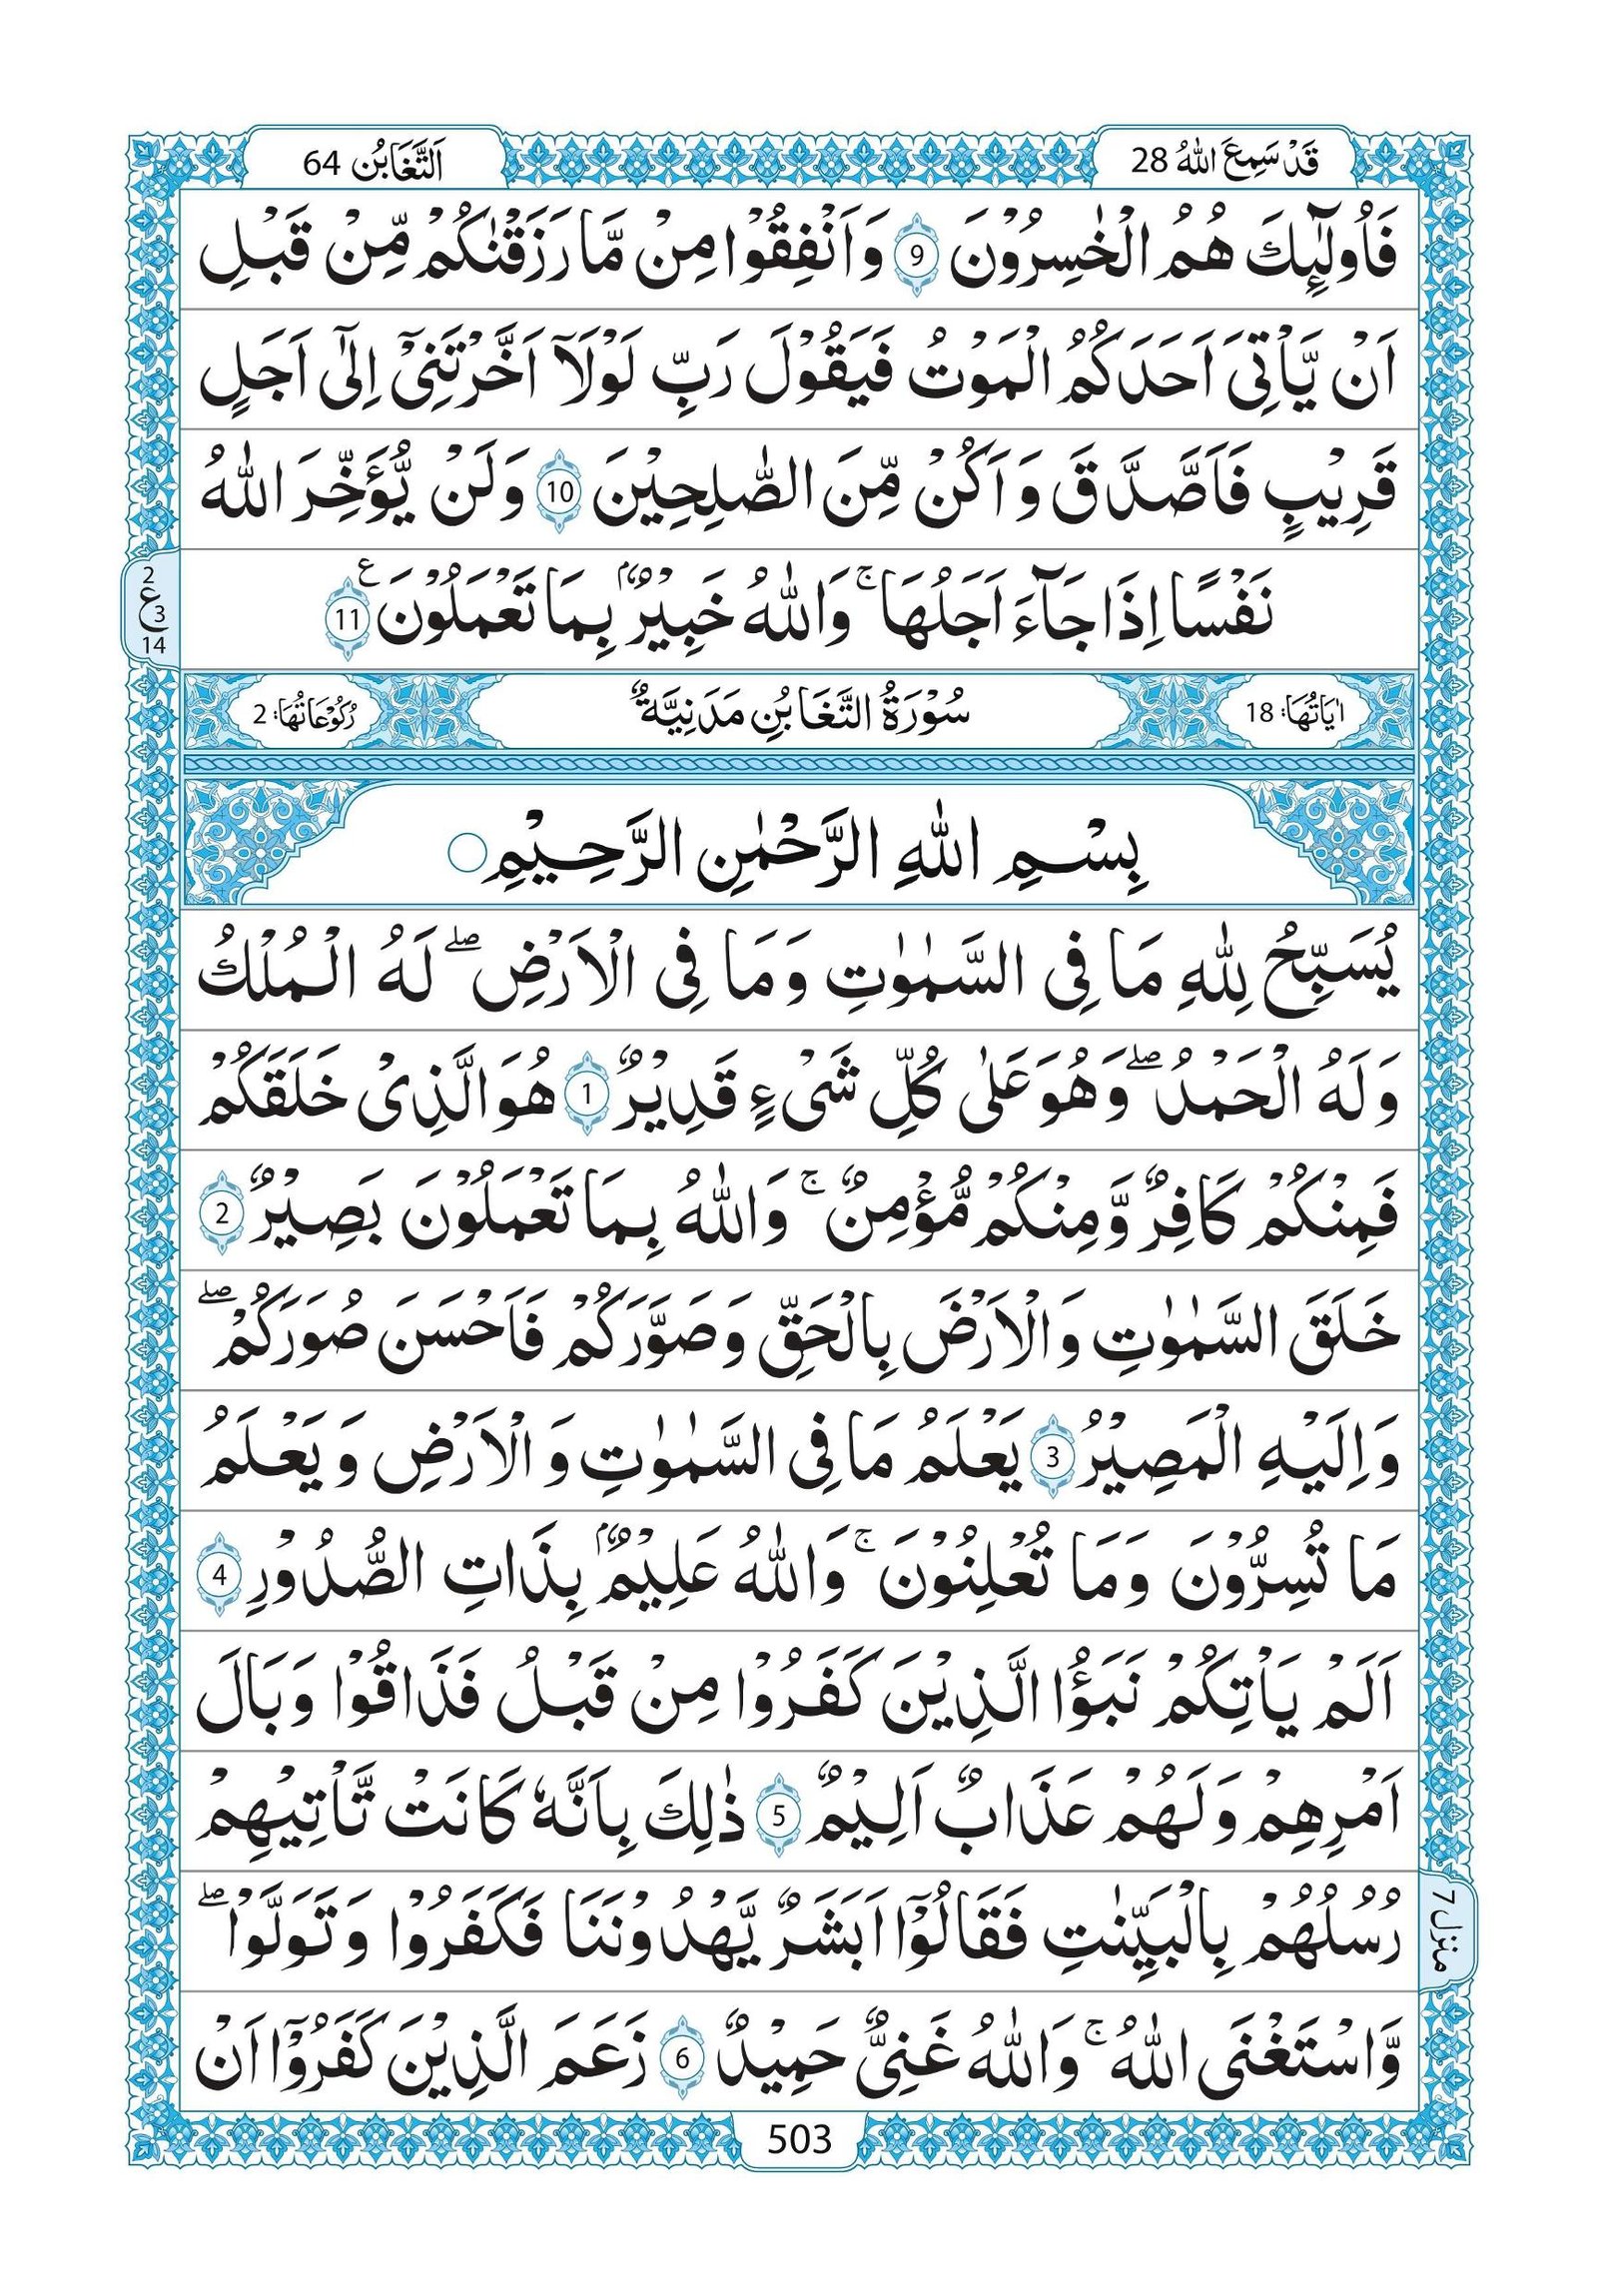 قَدْ سَمِعَ اللّٰهُ 28
اَلتَّغَابُن 64
فَاُولٰٓئِكَ هُمُ الْخٰسِرُوْنَ 9 وَاَنْفِقُوْا مِنْ مَّا رَزَقْنٰكُمْ مِّنْ قَبْلِ
اَنْ يَّاْتِيَ اَحَدَكُمُ الْمَوْتُ فَيَقُوْلَ رَبِّ لَوْلَآ اَخَّرْتَنِيْٓ اِلٰٓى اَجَلٍ
قَرِيْبٍ فَاَصَّدَّقَ وَاَكُنْ مِّنَ الصّٰلِحِيْنَ 10 وَلَنْ يُّؤَخِّرَ اللّٰهُ
نَفْسًا اِذَا جَآءَ اَجَلُهَا ۚ وَاللّٰهُ خَبِيْرٌۢ بِمَا تَعْمَلُوْنَ ع 11
2
ع 3
14
اٰيَاتُهَا: 18
سُوْرَةُ التَّغَابُنِ مَدَنِيَّةٌ
رُكُوْعَاتُهَا: 2
بِسْمِ اللّٰهِ الرَّحْمٰنِ الرَّحِيْمِ
يُسَبِّحُ لِلّٰهِ مَا فِى السَّمٰوٰتِ وَمَا فِى الْاَرْضِ ۖ لَهُ الْمُلْكُ
وَلَهُ الْحَمْدُ ۖ وَهُوَ عَلٰى كُلِّ شَىْءٍ قَدِيْرٌ 1 هُوَ الَّذِىْ خَلَقَكُمْ
فَمِنْكُمْ كَافِرٌ وَّمِنْكُمْ مُّؤْمِنٌ ۚ وَاللّٰهُ بِمَا تَعْمَلُوْنَ بَصِيْرٌ 2
خَلَقَ السَّمٰوٰتِ وَالْاَرْضَ بِالْحَقِّ وَصَوَّرَكُمْ فَاَحْسَنَ صُوَرَكُمْ ۖ
وَاِلَيْهِ الْمَصِيْرُ 3 يَعْلَمُ مَا فِى السَّمٰوٰتِ وَالْاَرْضِ وَيَعْلَمُ
مَا تُسِرُّوْنَ وَمَا تُعْلِنُوْنَ ۚ وَاللّٰهُ عَلِيْمٌۢ بِذَاتِ الصُّدُوْرِ 4
اَلَمْ يَاْتِكُمْ نَبَؤُا الَّذِيْنَ كَفَرُوْا مِنْ قَبْلُ فَذَاقُوْا وَبَالَ
اَمْرِهِمْ وَلَهُمْ عَذَابٌ اَلِيْمٌ 5 ذٰلِكَ بِاَنَّهٗ كَانَتْ تَّاْتِيْهِمْ
رُسُلُهُمْ بِالْبَيِّنٰتِ فَقَالُوْٓا اَبَشَرٌ يَّهْدُوْنَنَا فَكَفَرُوْا وَتَوَلَّوْا ۖ
منزل 7
وَّاسْتَغْنَى اللّٰهُ ۚ وَاللّٰهُ غَنِىٌّ حَمِيْدٌ 6 زَعَمَ الَّذِيْنَ كَفَرُوْٓا اَنْ
503